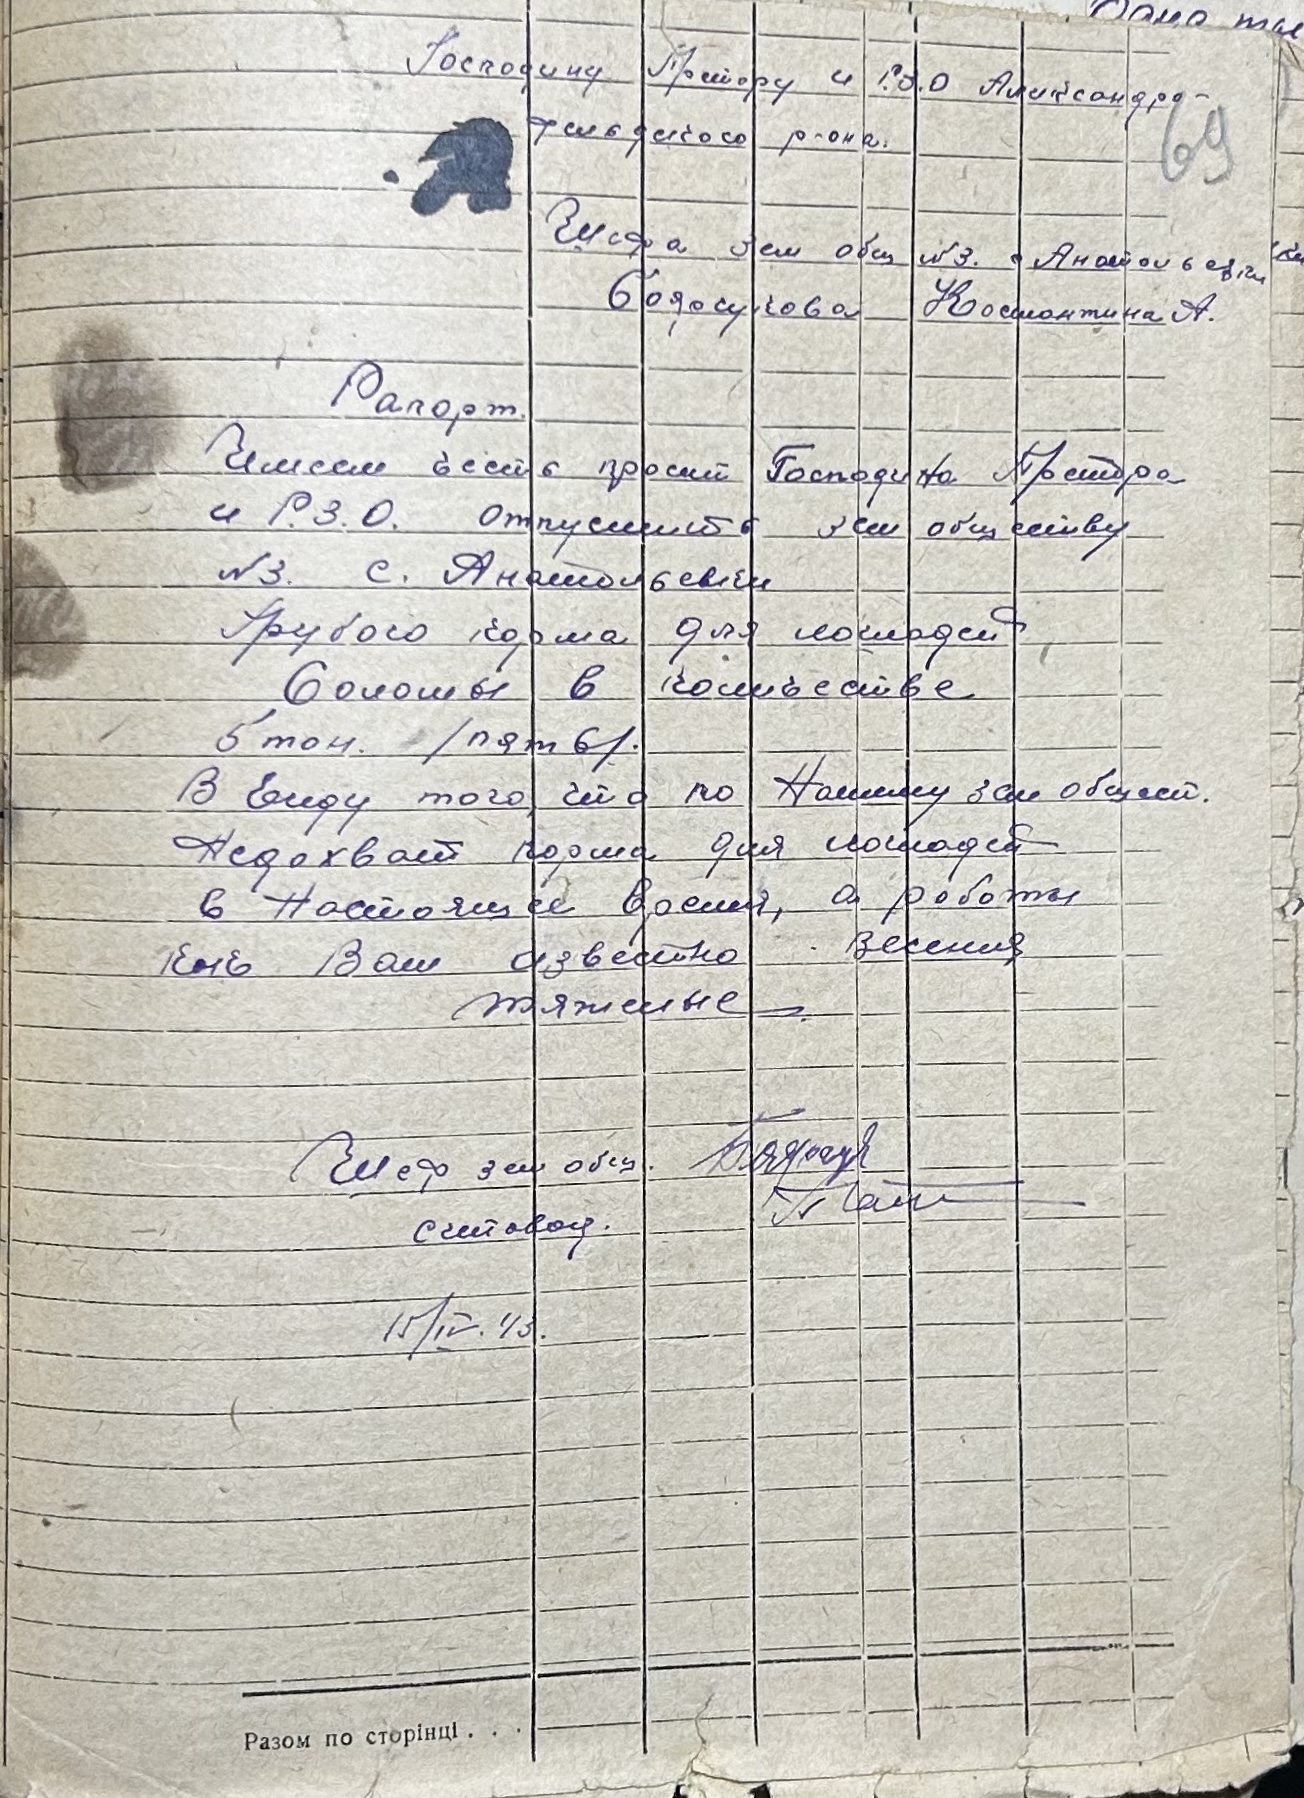 Господину Претору и Р.З.О Александро-
фельдского р-она.
69
Шефа зем общ №3. с Анатольевки
Константина А.
Рапорт.
Имеем честь просит Господина Претора
и Р.З.О. отпустить зем обществу
№3. с. Анатольевки
Грубого корма для лошадей
Соломы в количестве
5 тон. /пять/.
В виду того, что по Нашему зем общест.
Недохват корма для лошадей
в Настоящее время, а работы
как Вам известно весения
тяжелые
Шеф зем общ.
счетовод.
15/IV.43.
Разом по сторінці . . .